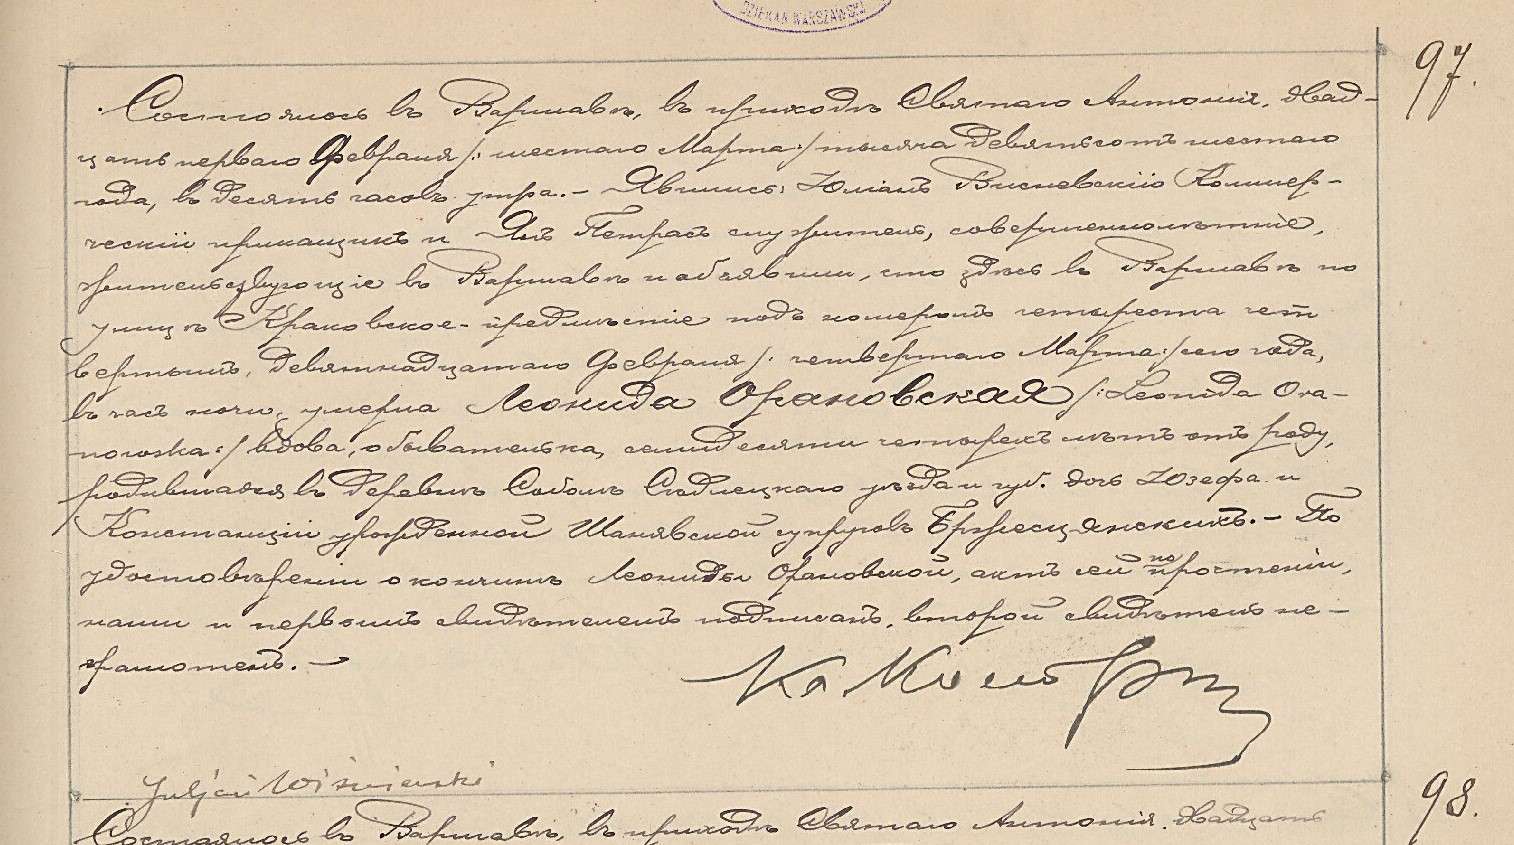 DZIEKAN WARSZAWSKI
97.
Состоялось въ Варшавѣ, въ приходѣ Святаго Антонія, двад-
цать перваго Февраля /: шестаго Марта :/ тысяча девятьсотъ шестаго
года, въ десять часовъ утра. – Явились: Юліанъ Висневскій Коммер-
ческій прикащикъ и Янъ Петрась служитель, совершеннолѣтніе,
жительствующіе въ Варшавѣ и объявили, что здѣсь въ Варшавѣ по
улицѣ Краковское-предмѣстіе подъ номеромъ четыреста чет
вертымъ, девятнадцатаго Февраля /: четвертаго Марта :/ сего года,
въ часъ ночи, умерла Леонида Орановская /: Leonida Ora-
nowska :/ вдова, обывателька, семидесяти четырехъ лѣтъ отъ роду,
родившаяся въ деревнѣ Сѣдлецкаго уѣзда и губ. дочь Юзефа и
Констанціи урожденной Шанявской супруговъ Бржесцянскихъ. – По
удостовѣреніи о кончинѣ Леониды Орановской, актъ сей по прочтеніи,
нами и первымъ свидѣтелемъ подписанъ, второй свидѣтель не-
грамотенъ. –
Juljan Wiśniewski
98.
Состоялось въ Варшавѣ, въ приходѣ Святаго Антонія, двадцать